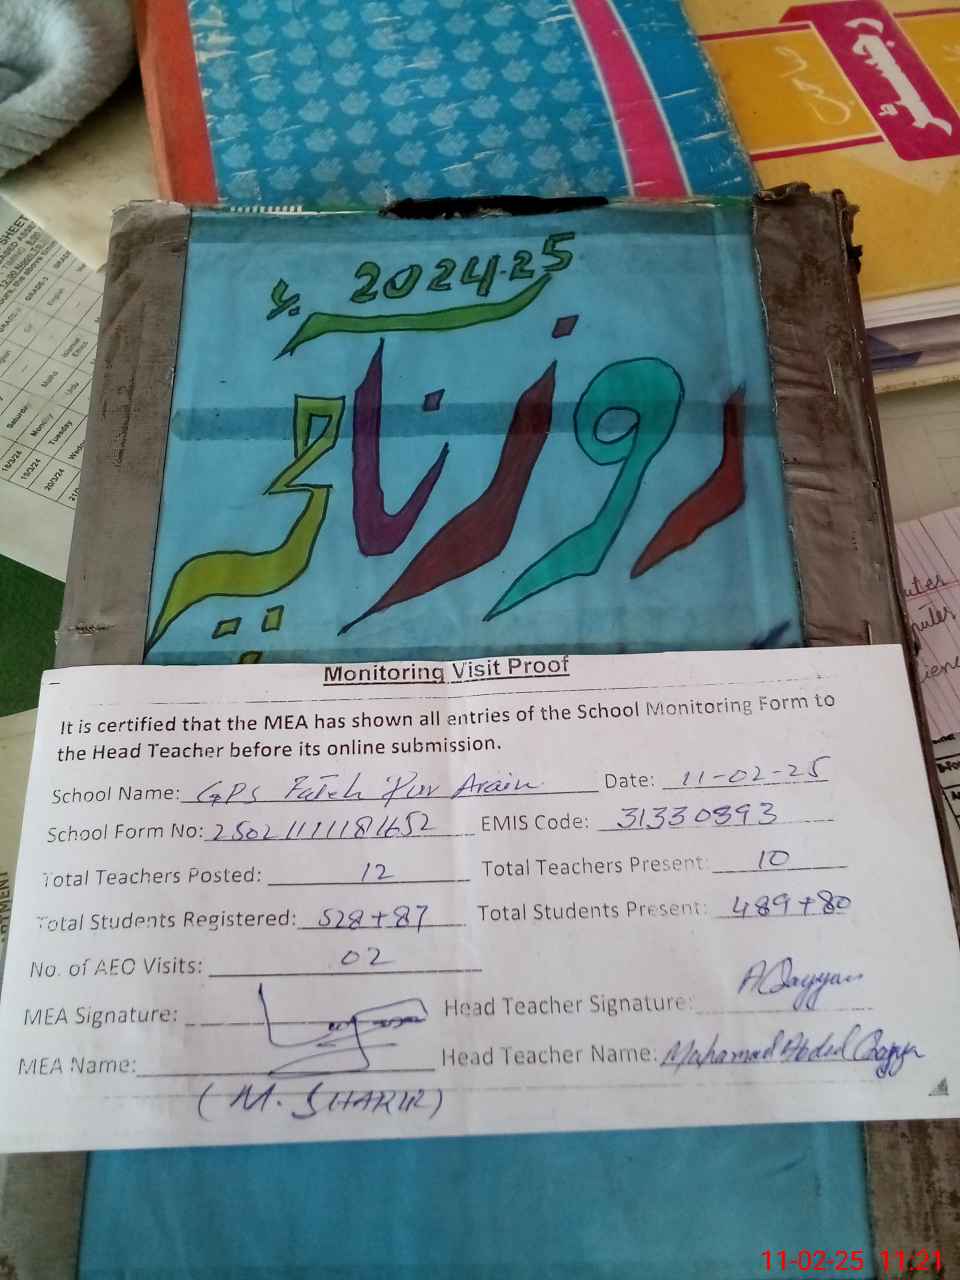 2024-25
روزنامچہ
Monitoring Visit Proof
It is certified that the MEA has shown all entries of the School Monitoring Form to
the Head Teacher before its online submission.
School Name: GPS Fateh Pur Arain Date: 11-02-25
School Form No: 25021111181652 EMIS Code: 31330893
Total Teachers Posted: 12 Total Teachers Present: 10
Total Students Registered: 528+87 Total Students Present: 489+80
No. of AEO Visits: 02
MEA Signature: Head Teacher Signature: AQayyum
MEA Name: Head Teacher Name: Muhammad Abdul Qayyum
(M. SHAKIR)
11-02-25 11:21
SHEET
Saturday
Monday
Tuesday
18/3/24
19/3/24
20/3/24
English
Maths
Urdu